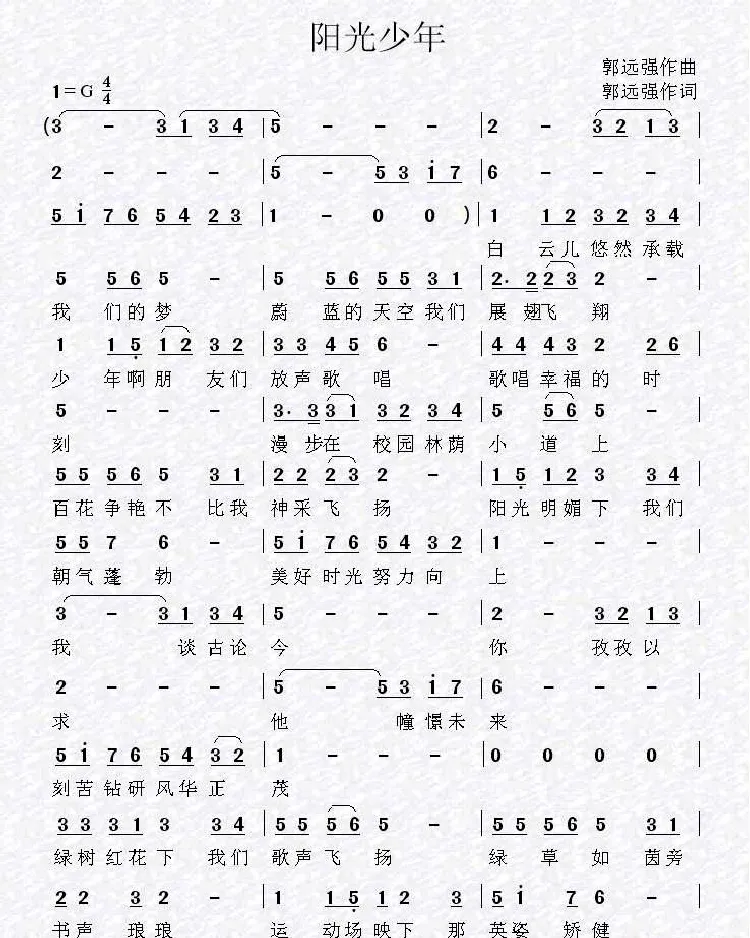 阳光少年
郭远强作曲
1=G 4/4 郭远强作词
(3 - 3 1 3 4 | 5 - - - | 2 - 3 2 1 3 |
2 - - - | 5 - 5 3 i 7 | 6 - - - |
5 i 7 6 5 4 2 3 | 1 - 0 0 ) | 1 1 2 3 2 3 4 |
白 云儿悠然承载
5 5 6 5 - | 5 5 6 5 5 3 1 | 2· 2 2 3 2 - |
我 们的梦 蔚 蓝的天空我们 展 翅飞 翔
1 1 5 1 2 3 2 | 3 3 4 5 6 - | 4 4 4 3 2 2 6 |
少 年啊朋 友们 放声歌 唱 歌唱幸福的 时
5 - - - | 3· 3 3 1 3 2 3 4 | 5 5 6 5 - |
刻 漫 步在 校园林荫 小 道 上
5 5 5 6 5 3 1 | 2 2 2 3 2 - | 1 5 1 2 3 3 4 |
百花争艳不 比我 神采飞 扬 阳光明媚下 我们
5 5 7 6 - | 5 i 7 6 5 4 3 2 | 1 - - - |
朝气蓬 勃 美好时光努力向 上
3 - 3 1 3 4 | 5 - - - | 2 - 3 2 1 3 |
我 谈古论 今 你 孜孜以
2 - - - | 5 - 5 3 i 7 | 6 - - - |
求 他 憧憬未 来
5 i 7 6 5 4 3 2 | 1 - - - | 0 0 0 0 |
刻苦钻研风华正 茂
3 3 3 1 3 3 4 | 5 5 5 6 5 - | 5 5 5 6 5 3 1 |
绿树红花下 我们 歌声飞 扬 绿 草 如 茵旁
2 2 3 2 - | 1 1 5 1 2 3 | 5 i 7 6 - |
书声 琅琅 运 动场映下 那 英姿 矫健